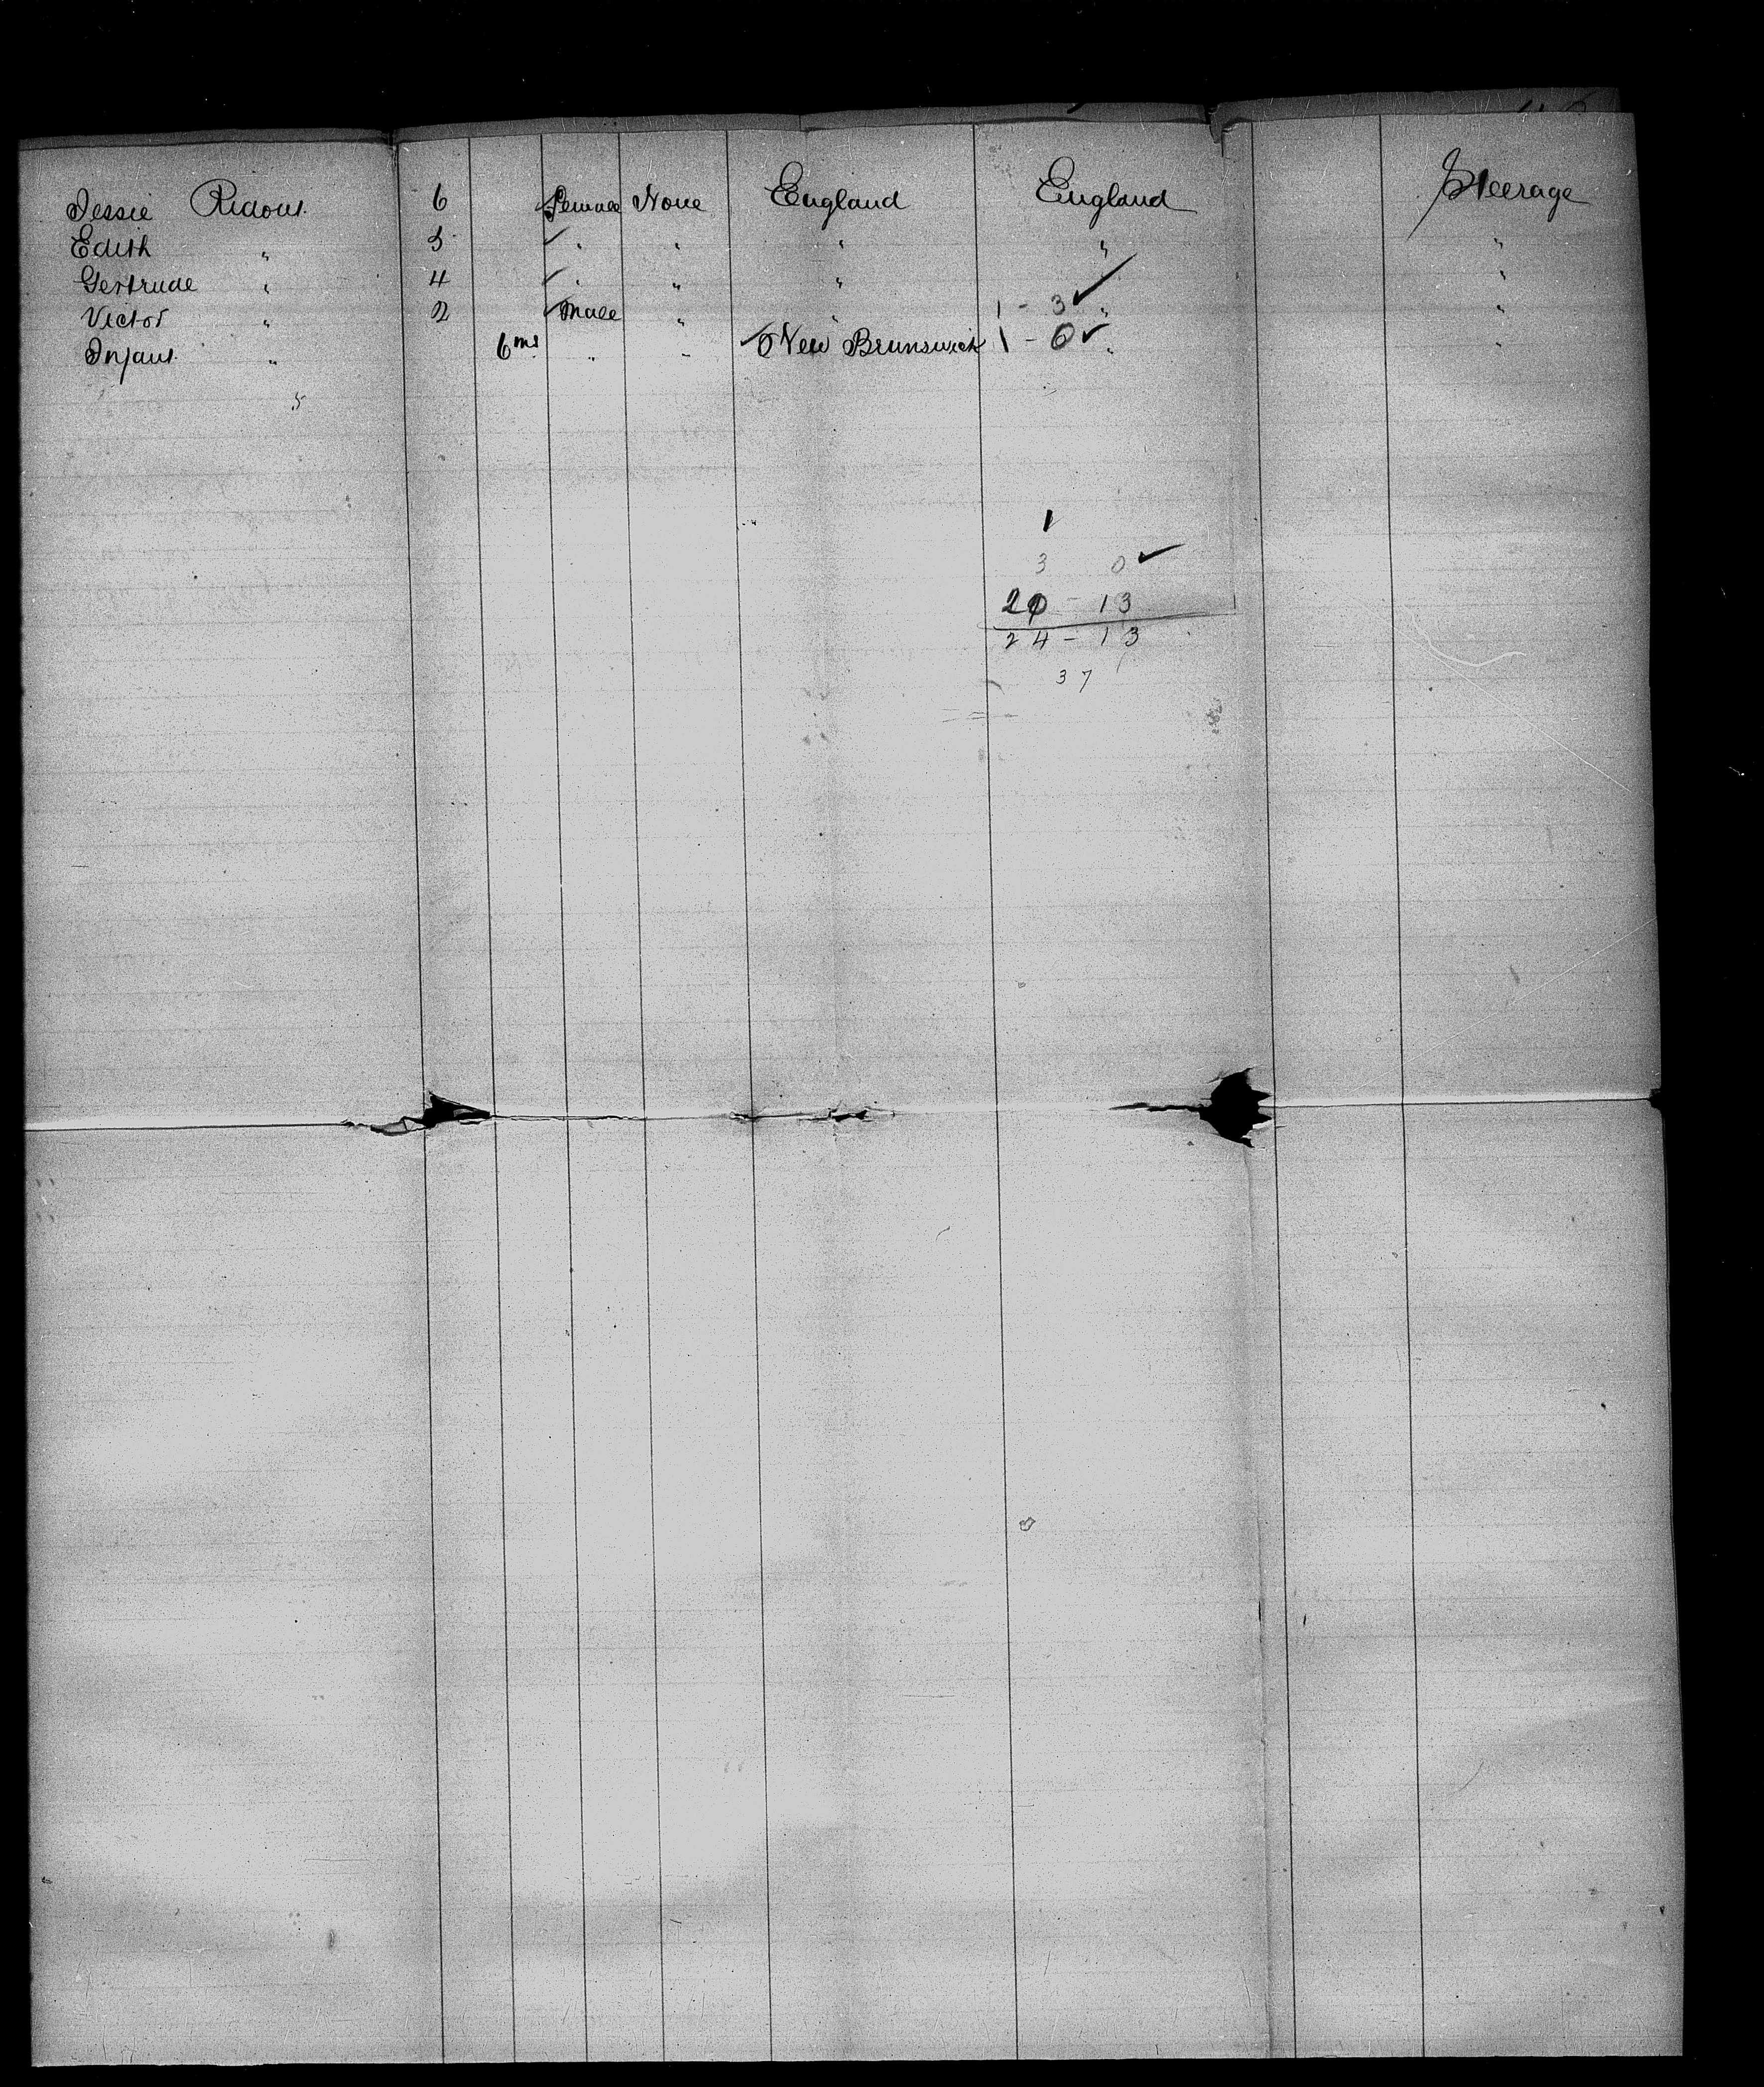 Jessie Ridout 6 Female None England England Steerage
Edith " 5 " " " " "
Gertrude " 4 " " " " "
Victor " 2 Male " " 1 - 3 ✓ " "
Infant " 6 ms " " New Brunswick 1 - 0 ✓ " "
5
1
3 0 ✓
20 - 13
24 - 13
37